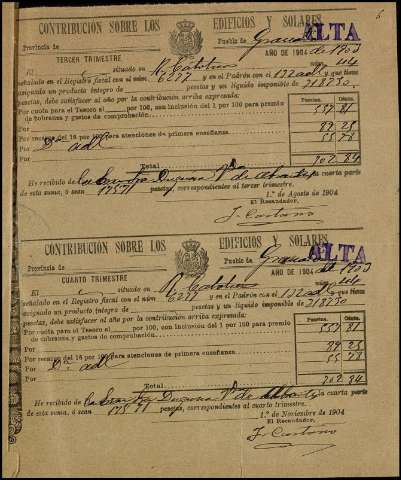 6
CONTRIBUCIÓN SOBRE LOS EDIFICIOS Y SOLARES
ALTA
Provincia de
Pueblo de Granada
TERCER TRIMESTRE
AÑO DE 1904 de 1903
El situado en R. Catolica 44
señalado en el Registro fiscal con el núm. 6277 y en el Padrón con el 132 adl que tiene
asignado un producto íntegro de pesetas y un líquido imponible de 2187'50
pesetas, debe satisfacer al año por la contribución arriba expresada:
Por cuota para el Tesoro al por 100, con inclusión del 1 por 100 para premio
de cobranza y gastos de comprobación. 557 81
Por
Por recargo del 16 por 100 para atenciones de primera enseñanza. 89 25
Por Dº adl 55 78
Total 702 84
He recibido de la cuarta parte
de esta suma, ó sean 175'71 pesetas, correspondientes al tercer trimestre.
1.º de Agosto de 1904
El Recaudador,
CONTRIBUCIÓN SOBRE LOS EDIFICIOS Y SOLARES
ALTA
Provincia de
Pueblo de Granada
CUARTO TRIMESTRE
AÑO DE 1904 de 1903
El situado en R. Catolica 44
señalado en el Registro fiscal con el núm. 6277 y en el Padrón con el 132 adl que tiene
asignado un producto íntegro de pesetas y un líquido imponible de 2187'50
pesetas, debe satisfacer al año por la contribución arriba expresada:
Por cuota para el Tesoro al por 100, con inclusión del 1 por 100 para premio
de cobranza y gastos de comprobación. 557 81
Por
Por recargo del 16 por 100 para atenciones de primera enseñanza. 89 25
Por Dº adl 55 78
Total 702 84
He recibido de la cuarta parte
de esta suma, ó sean 175'71 pesetas, correspondientes al cuarto trimestre.
1.º de Noviembre de 1904
El Recaudador,